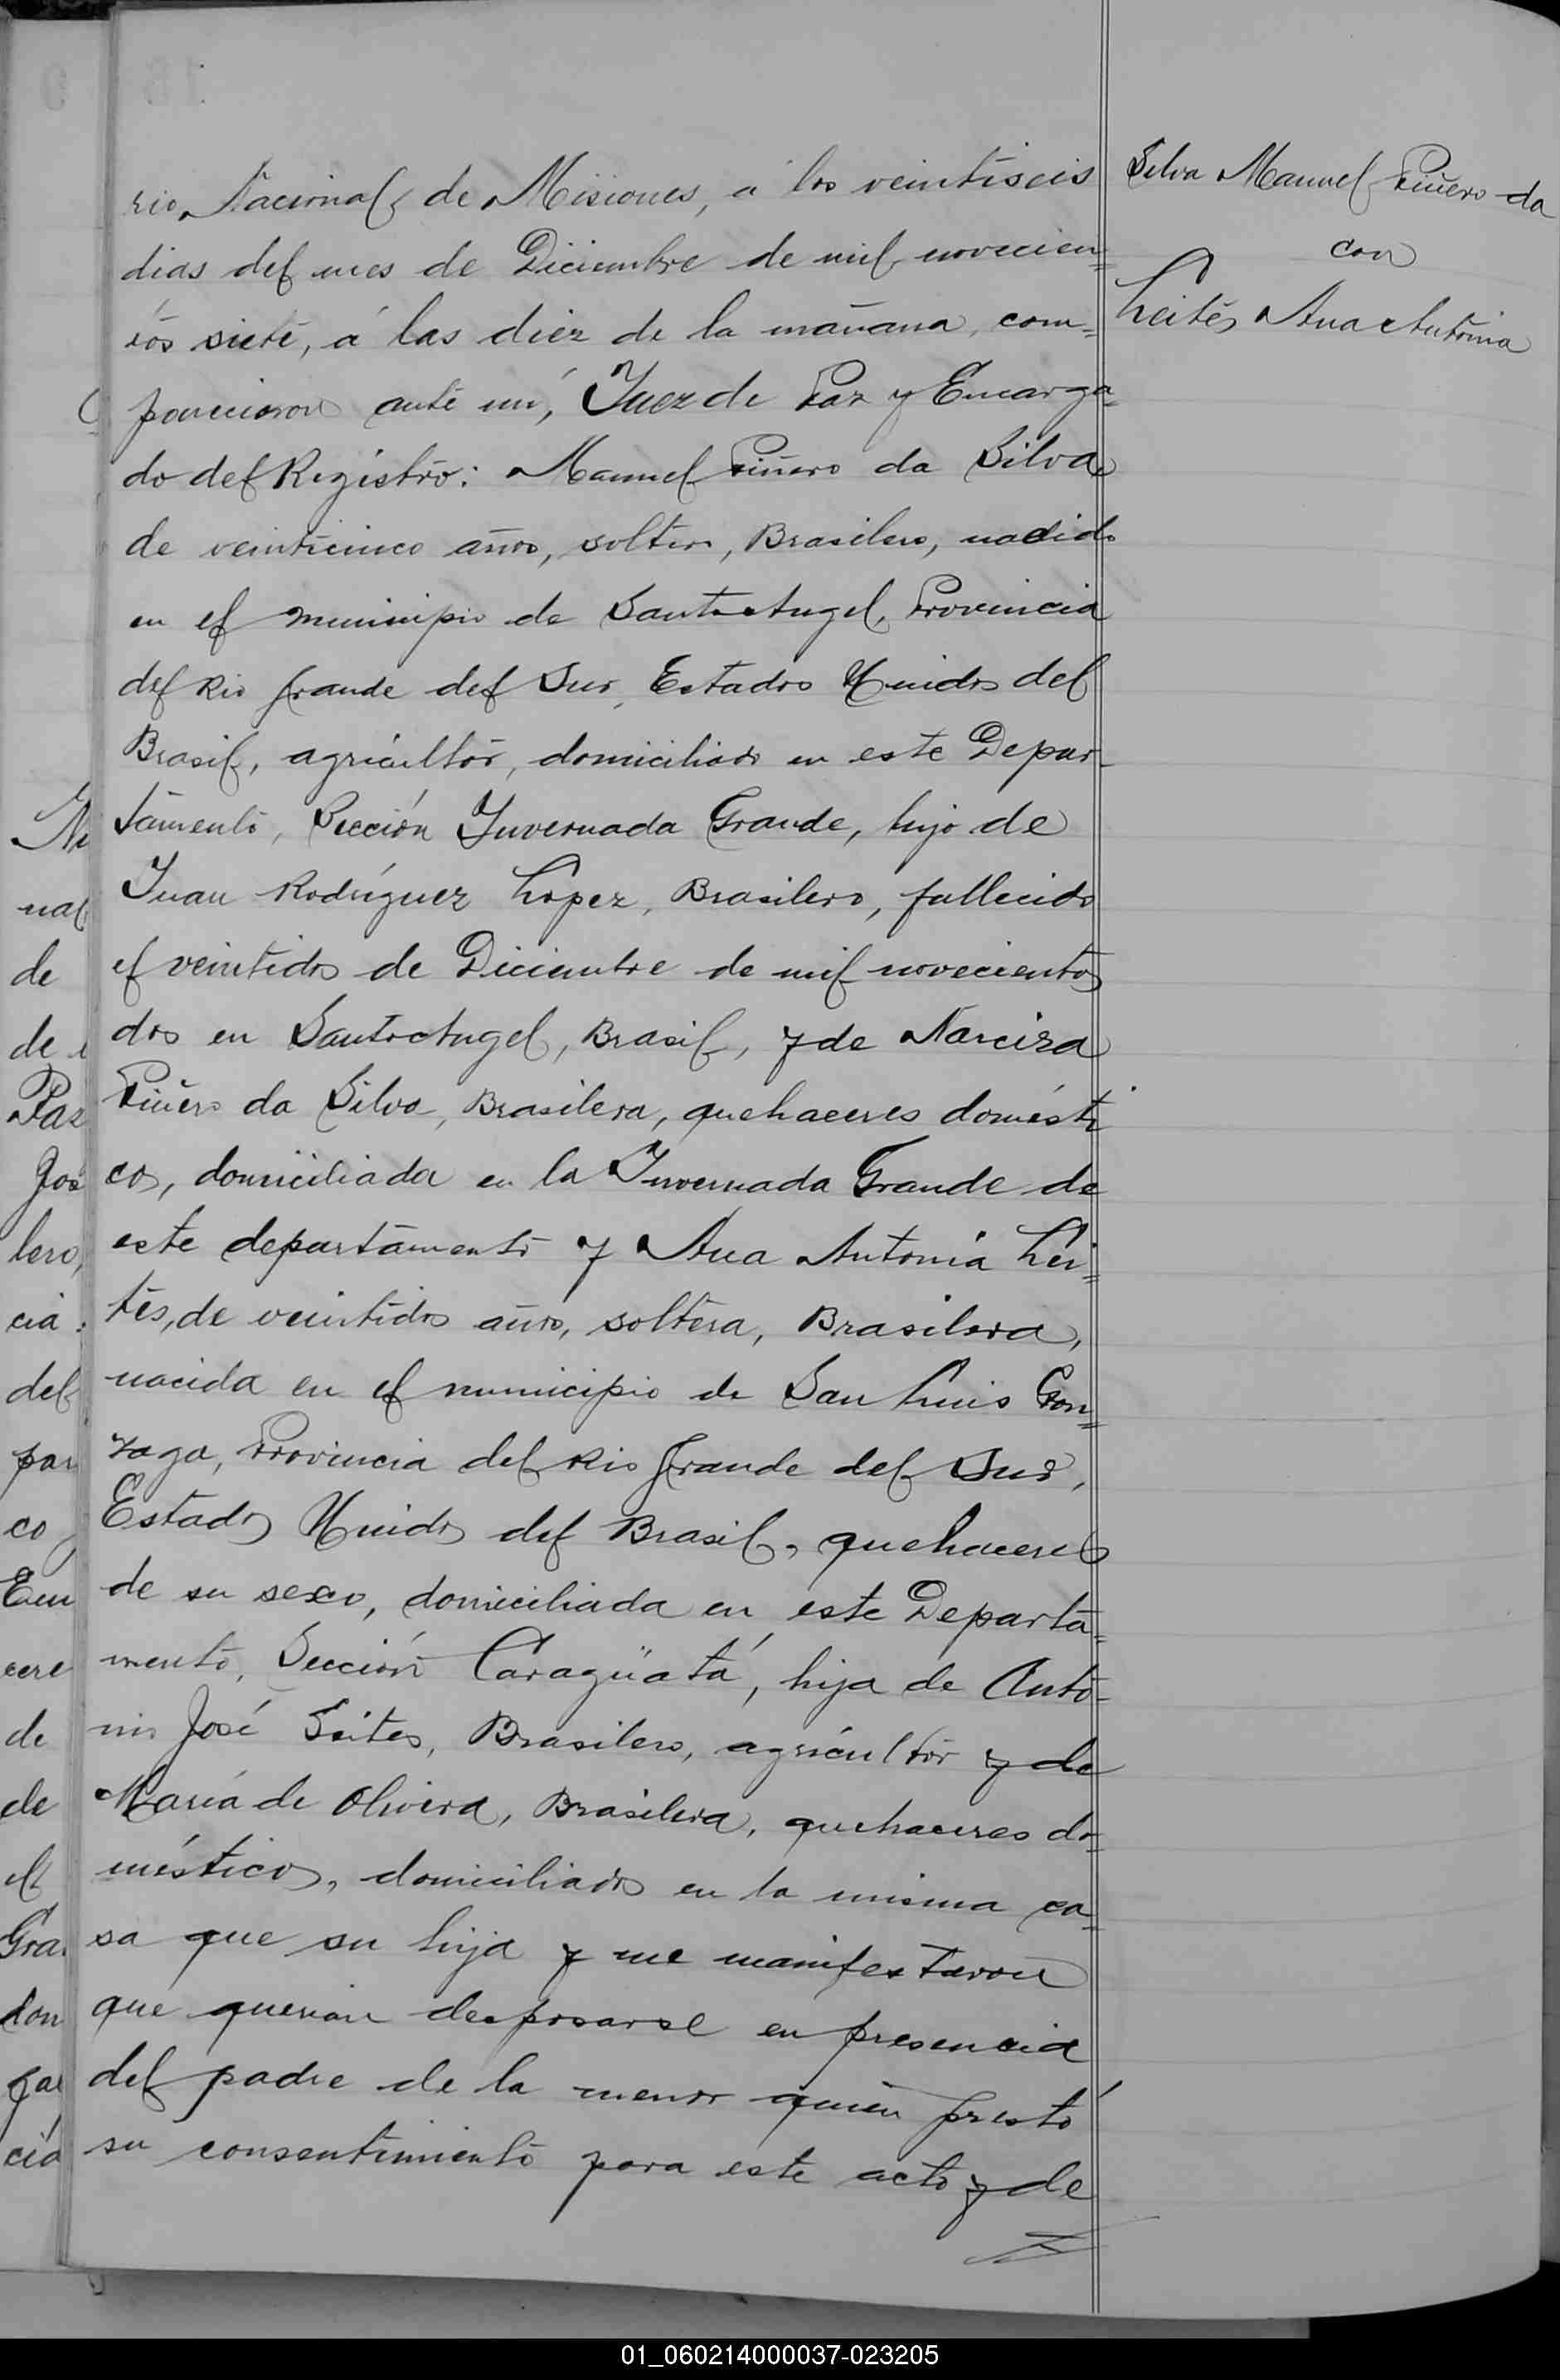 rio Nacional de Misiones, á los veintiseis
dias del mes de Diciembre de mil novecien=
tos siete, á las diez de la mañana, com=
parecieron ante mí, Juez de Paz y Encarga=
do del Registro: Manuel Piñero da Silva
de veinticinco años, soltero, Brasilero, nacido
en el municipio de Santo Angel, Provincia
del Rio Grande del Sur, Estados Unidos del
Brasil, agricultor, domiciliado en este Depar-
tamento, Sección Invernada Grande, hijo de
Juan Rodríguez Lopez, Brasilero, fallecido
el veintidos de Diciembre de mil novecientos
dos en Santo Angel, Brasil, y de Narciza
Piñero da Silva, Brasilera, quehaceres domésti
cos, domiciliada en la Invernada Grande de
este departamento y Ana Antonia Lei=
tes, de veintidos años, soltera, Brasilera,
nacida en el municipio de San Luis Gon=
zaga, Provincia del Rio Grande del Sur,
Estados Unidos del Brasil, quehaceres
de su sexo, domiciliada en este Departa=
mento, Sección Caragüatá, hija de Anto-
nio José Leites, Brasilero, agricultor y de
María de Olivera, Brasilera, quehaceres do-
mésticos, domiciliados en la misma ca=
sa que su hija y me manifestaron
que querian desposarse en presencia
del padre de la menor quien prestó
su consentimiento para este acto y de
Silva Manuel Piñero da
con
Leites Ana Antonia
nal
de
de
Paz
José
lero,
cia
del
par
co
Em
cere
de
de
el
Gra
don
cia
01_060214000037-023205